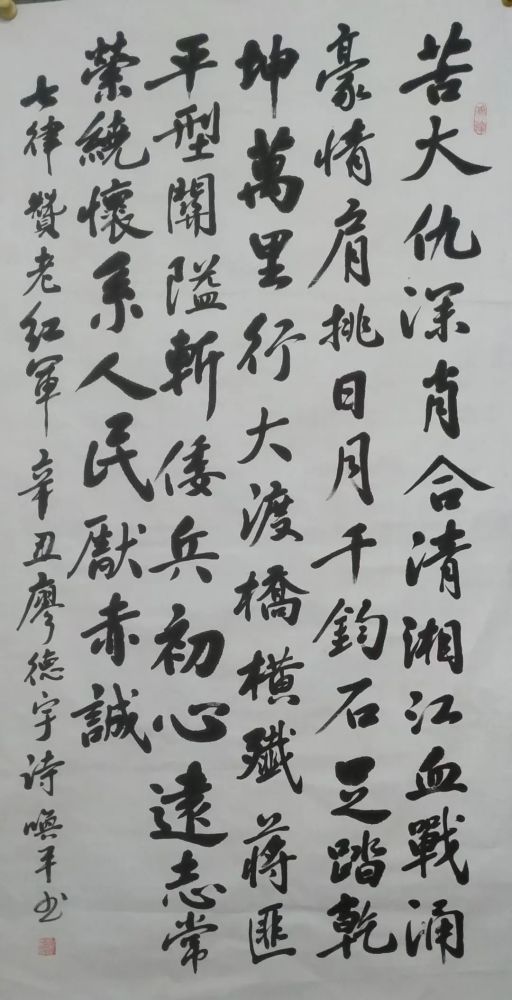 苦大仇深肖合清湘江血戰涌
豪情肩挑日月千鈞石足踏乾
坤萬里行大渡橋橫殲蔣匪
平型關隘斬倭兵初心遠志常
榮繞懷系人民獻赤誠
七律贊老紅軍辛丑廖德宇诗嗅平书